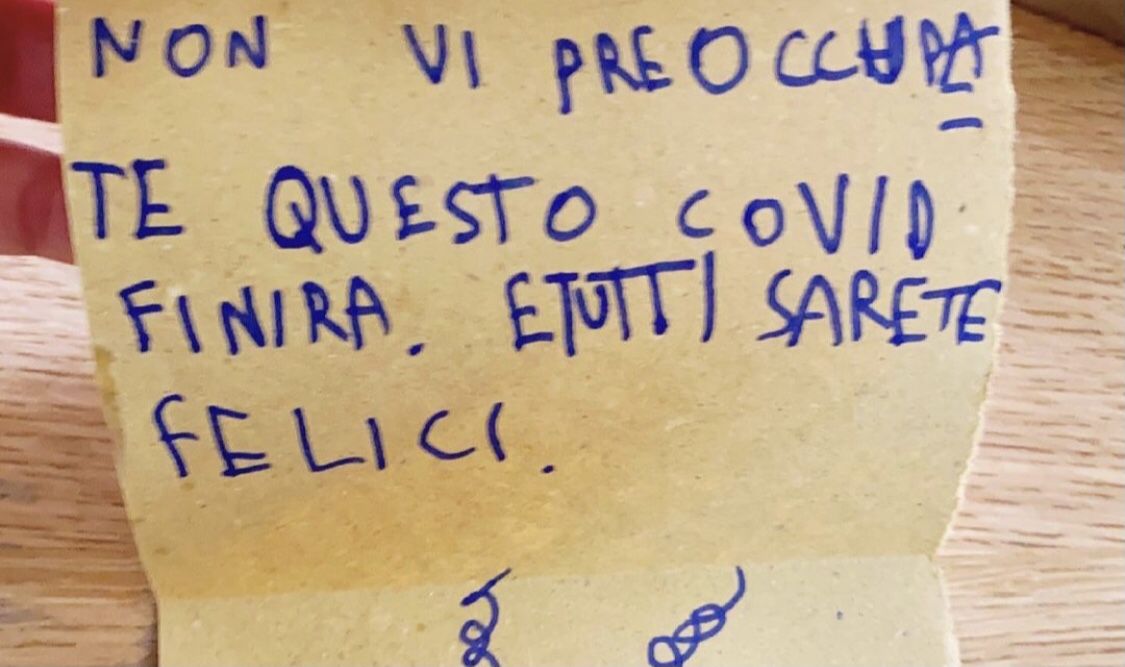 NON VI PREOCCUPA
TE QUESTO COVID
FINIRA. E TUTTI SARETE
FELICI.